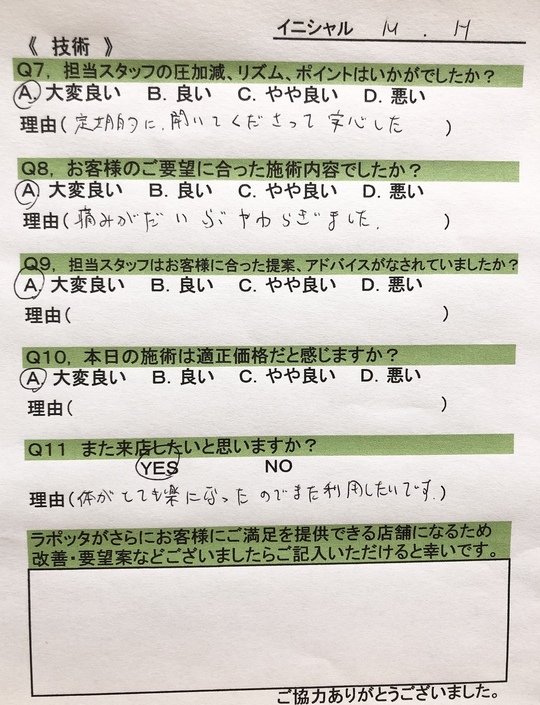 イニシャル M . H
《 技術 》
Q7, 担当スタッフの圧加減、リズム、ポイントはいかがでしたか？
A. 大変良い B. 良い C. やや良い D. 悪い
理由( 定期的に、聞いてくださって安心した )
Q8, お客様のご要望に合った施術内容でしたか？
A. 大変良い B. 良い C. やや良い D. 悪い
理由( 痛みがだいぶやわらぎました. )
Q9, 担当スタッフはお客様に合った提案、アドバイスがなされていましたか？
A. 大変良い B. 良い C. やや良い D. 悪い
理由( )
Q10, 本日の施術は適正価格だと感じますか？
A. 大変良い B. 良い C. やや良い D. 悪い
理由( )
Q11 また来店したいと思いますか？
YES NO
理由( 体がとても楽になったのでまた利用したいです. )
ラポッタがさらにお客様にご満足を提供できる店舗になるため
改善・要望案などございましたらご記入いただけると幸いです。
ご協力ありがとうございました。